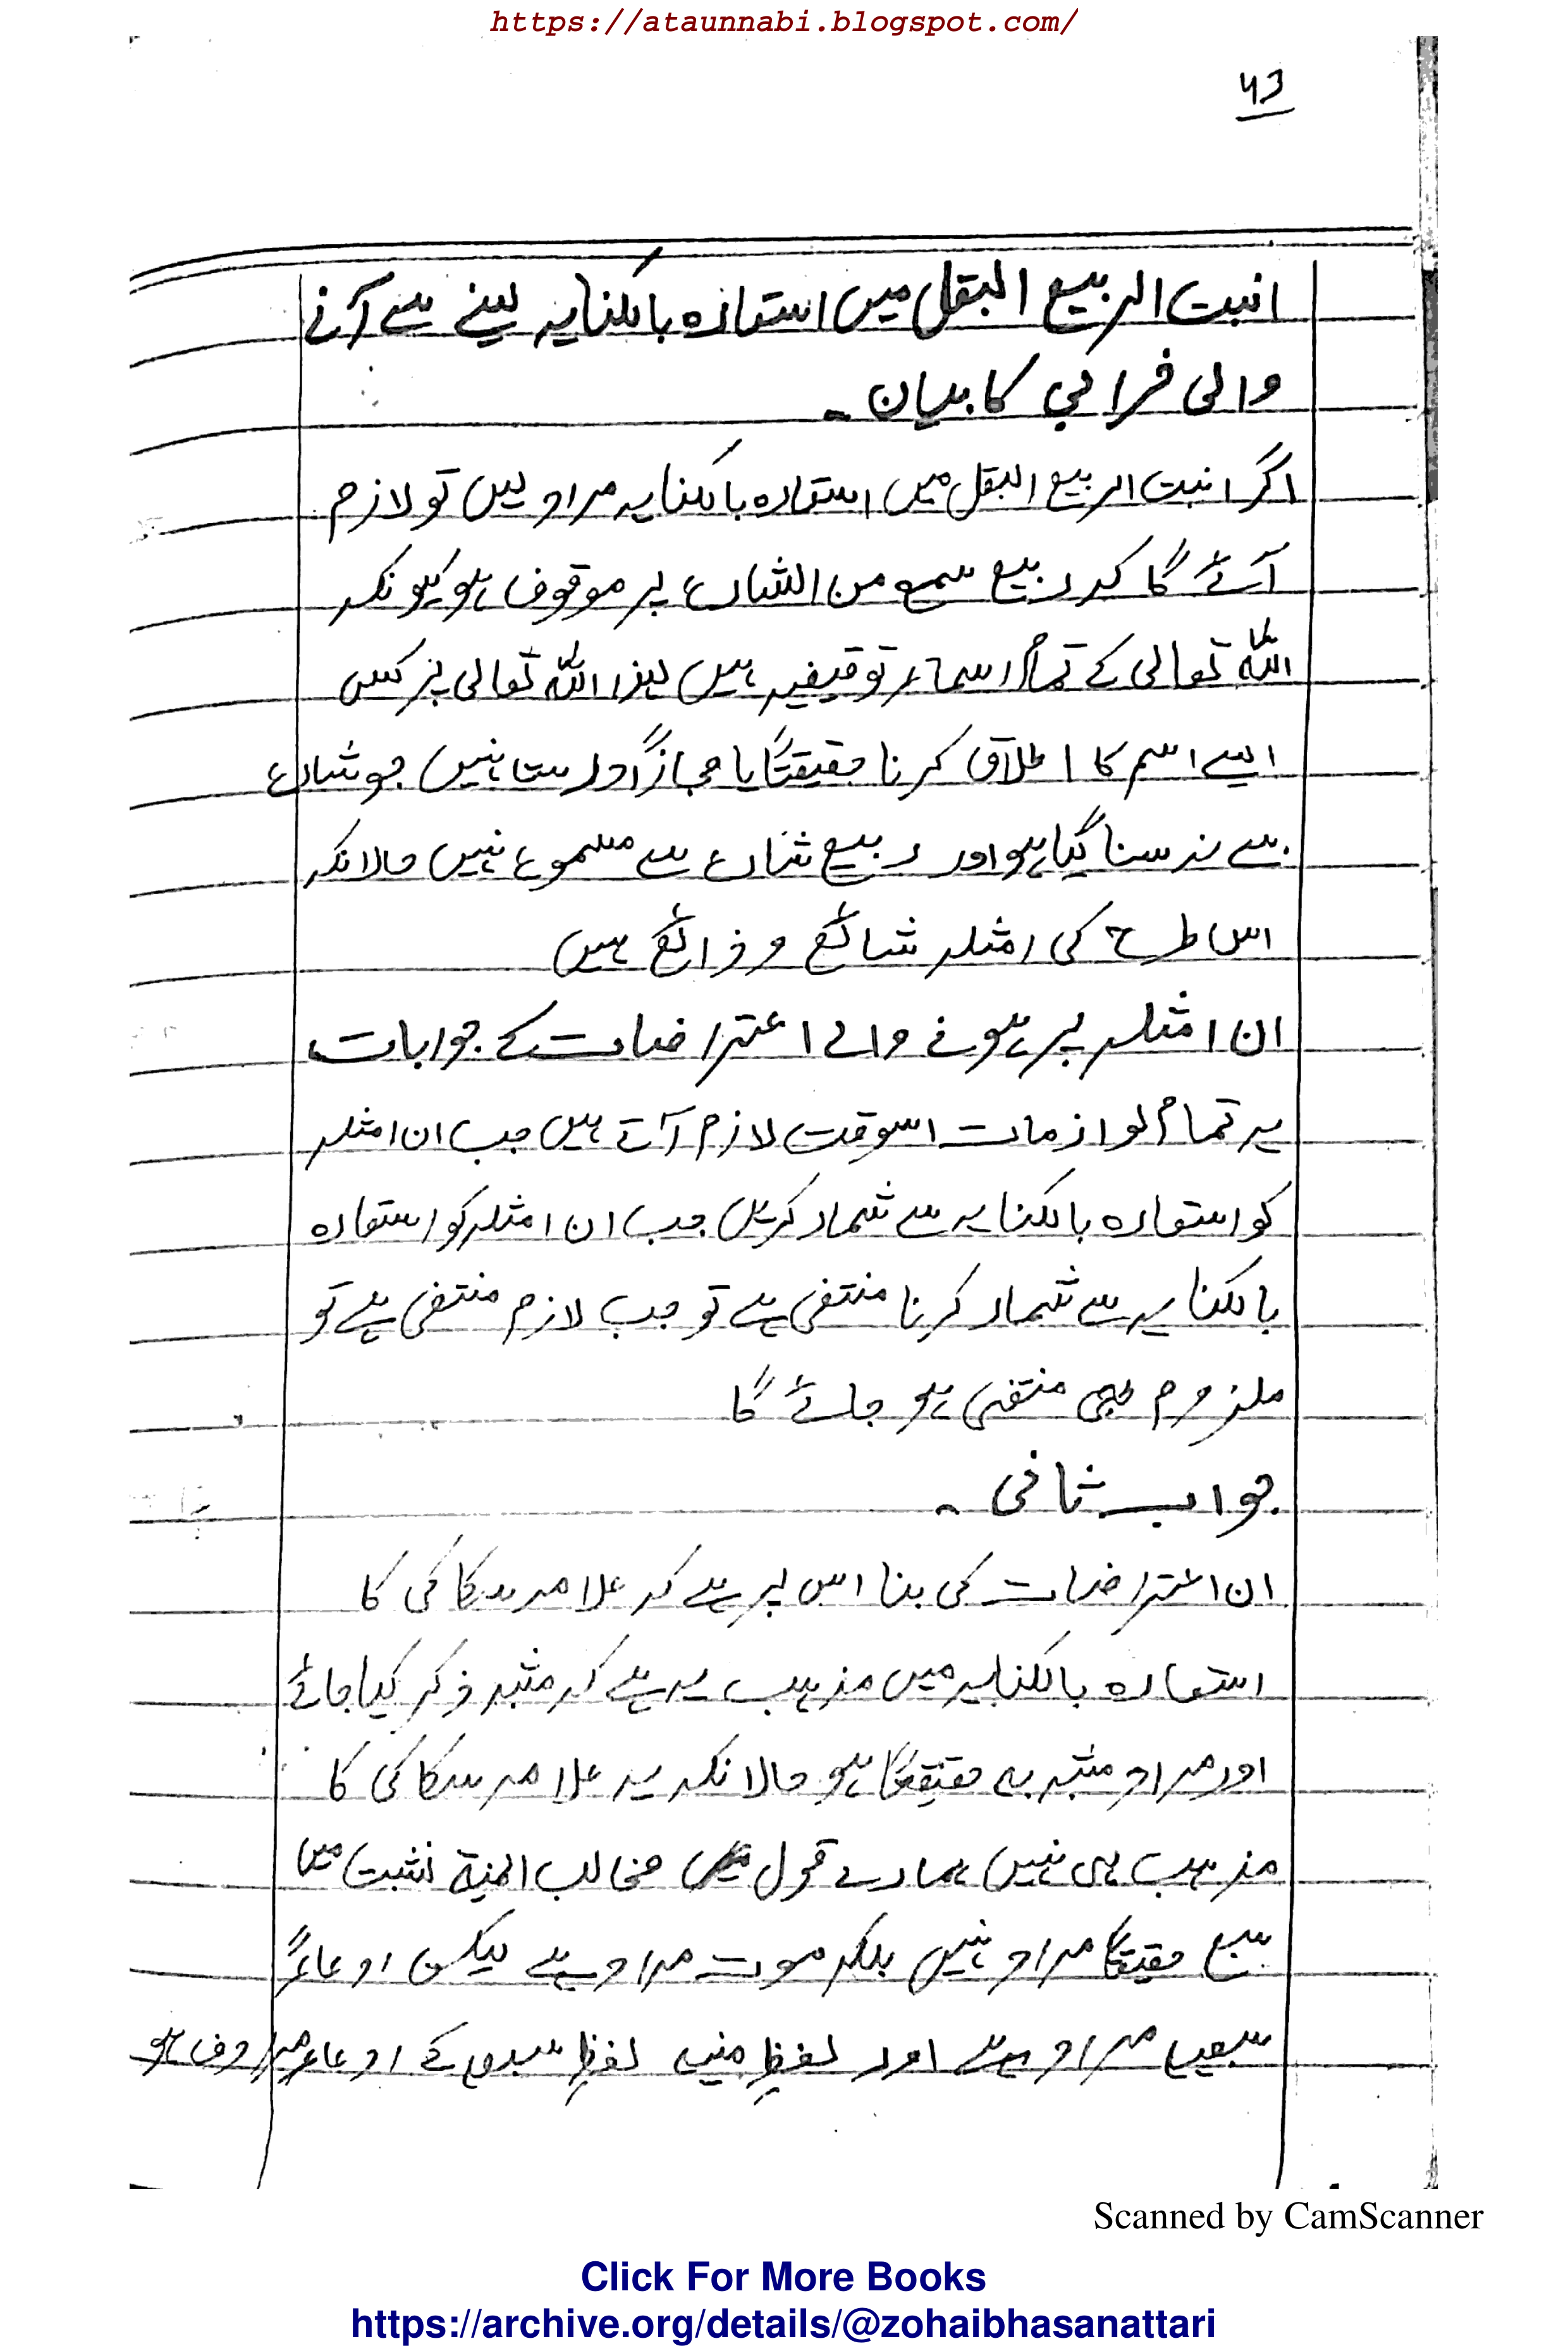 https://ataunnabi.blogspot.com/
انبت الربیع البقل میں استعارہ بالکنایہ لینے سے آنے
والی خرابی کا بیان ۔
اگر انبت الربیع البقل میں استعارہ بالکنایہ مراد لیں تو لازم
آئے گا کہ ربیع سمع من الشارع پر موقوف ہو کیونکہ
اللہ تعالی کے تمام اسماء توقیفیہ ہیں لہذا اللہ تعالی پر کسی
ایسے اسم کا اطلاق کرنا حقیقتاً یا مجازاً درست نہیں جو شارع
سے نہ سنا گیا ہو اور ربیع شارع سے مسموع نہیں حالانکہ
اس طرح کی امثلہ شائع و ذائع ہیں
ان امثلہ پر ہونے والے اعتراضات کے جوابات
یہ تمام لوازمات اسوقت لازم آتے ہیں جب ان امثلہ
کو استعارہ بالکنایہ سے شمار کریں جب ان امثلہ کو استعارہ
بالکنایہ سے شمار کرنا منتفی ہے تو جب لازم منتفی ہے تو
ملزوم بھی منتفی ہو جائے گا
جواب ثانی ۔
ان اعتراضات کی بنا اس پر ہے کہ علامہ سکاکی کا
استعارہ بالکنایہ میں مذہب یہ ہے کہ مشبہ ذکر کیا جائے
اور مراد مشبہ بہ حقیقتاً ہو حالانکہ یہ علامہ سکاکی کا
مذہب ہی نہیں ہمارے قول مخالب المنیۃ نشبت میں
سبع حقیقتاً مراد نہیں بلکہ موت مراد ہے لیکن ادعاءً
سبعیت مراد ہے اور لفظِ منیہ لفظِ سبع کے ادعاء مرادف ہو
Scanned by CamScanner
Click For More Books
https://archive.org/details/@zohaibhasanattari